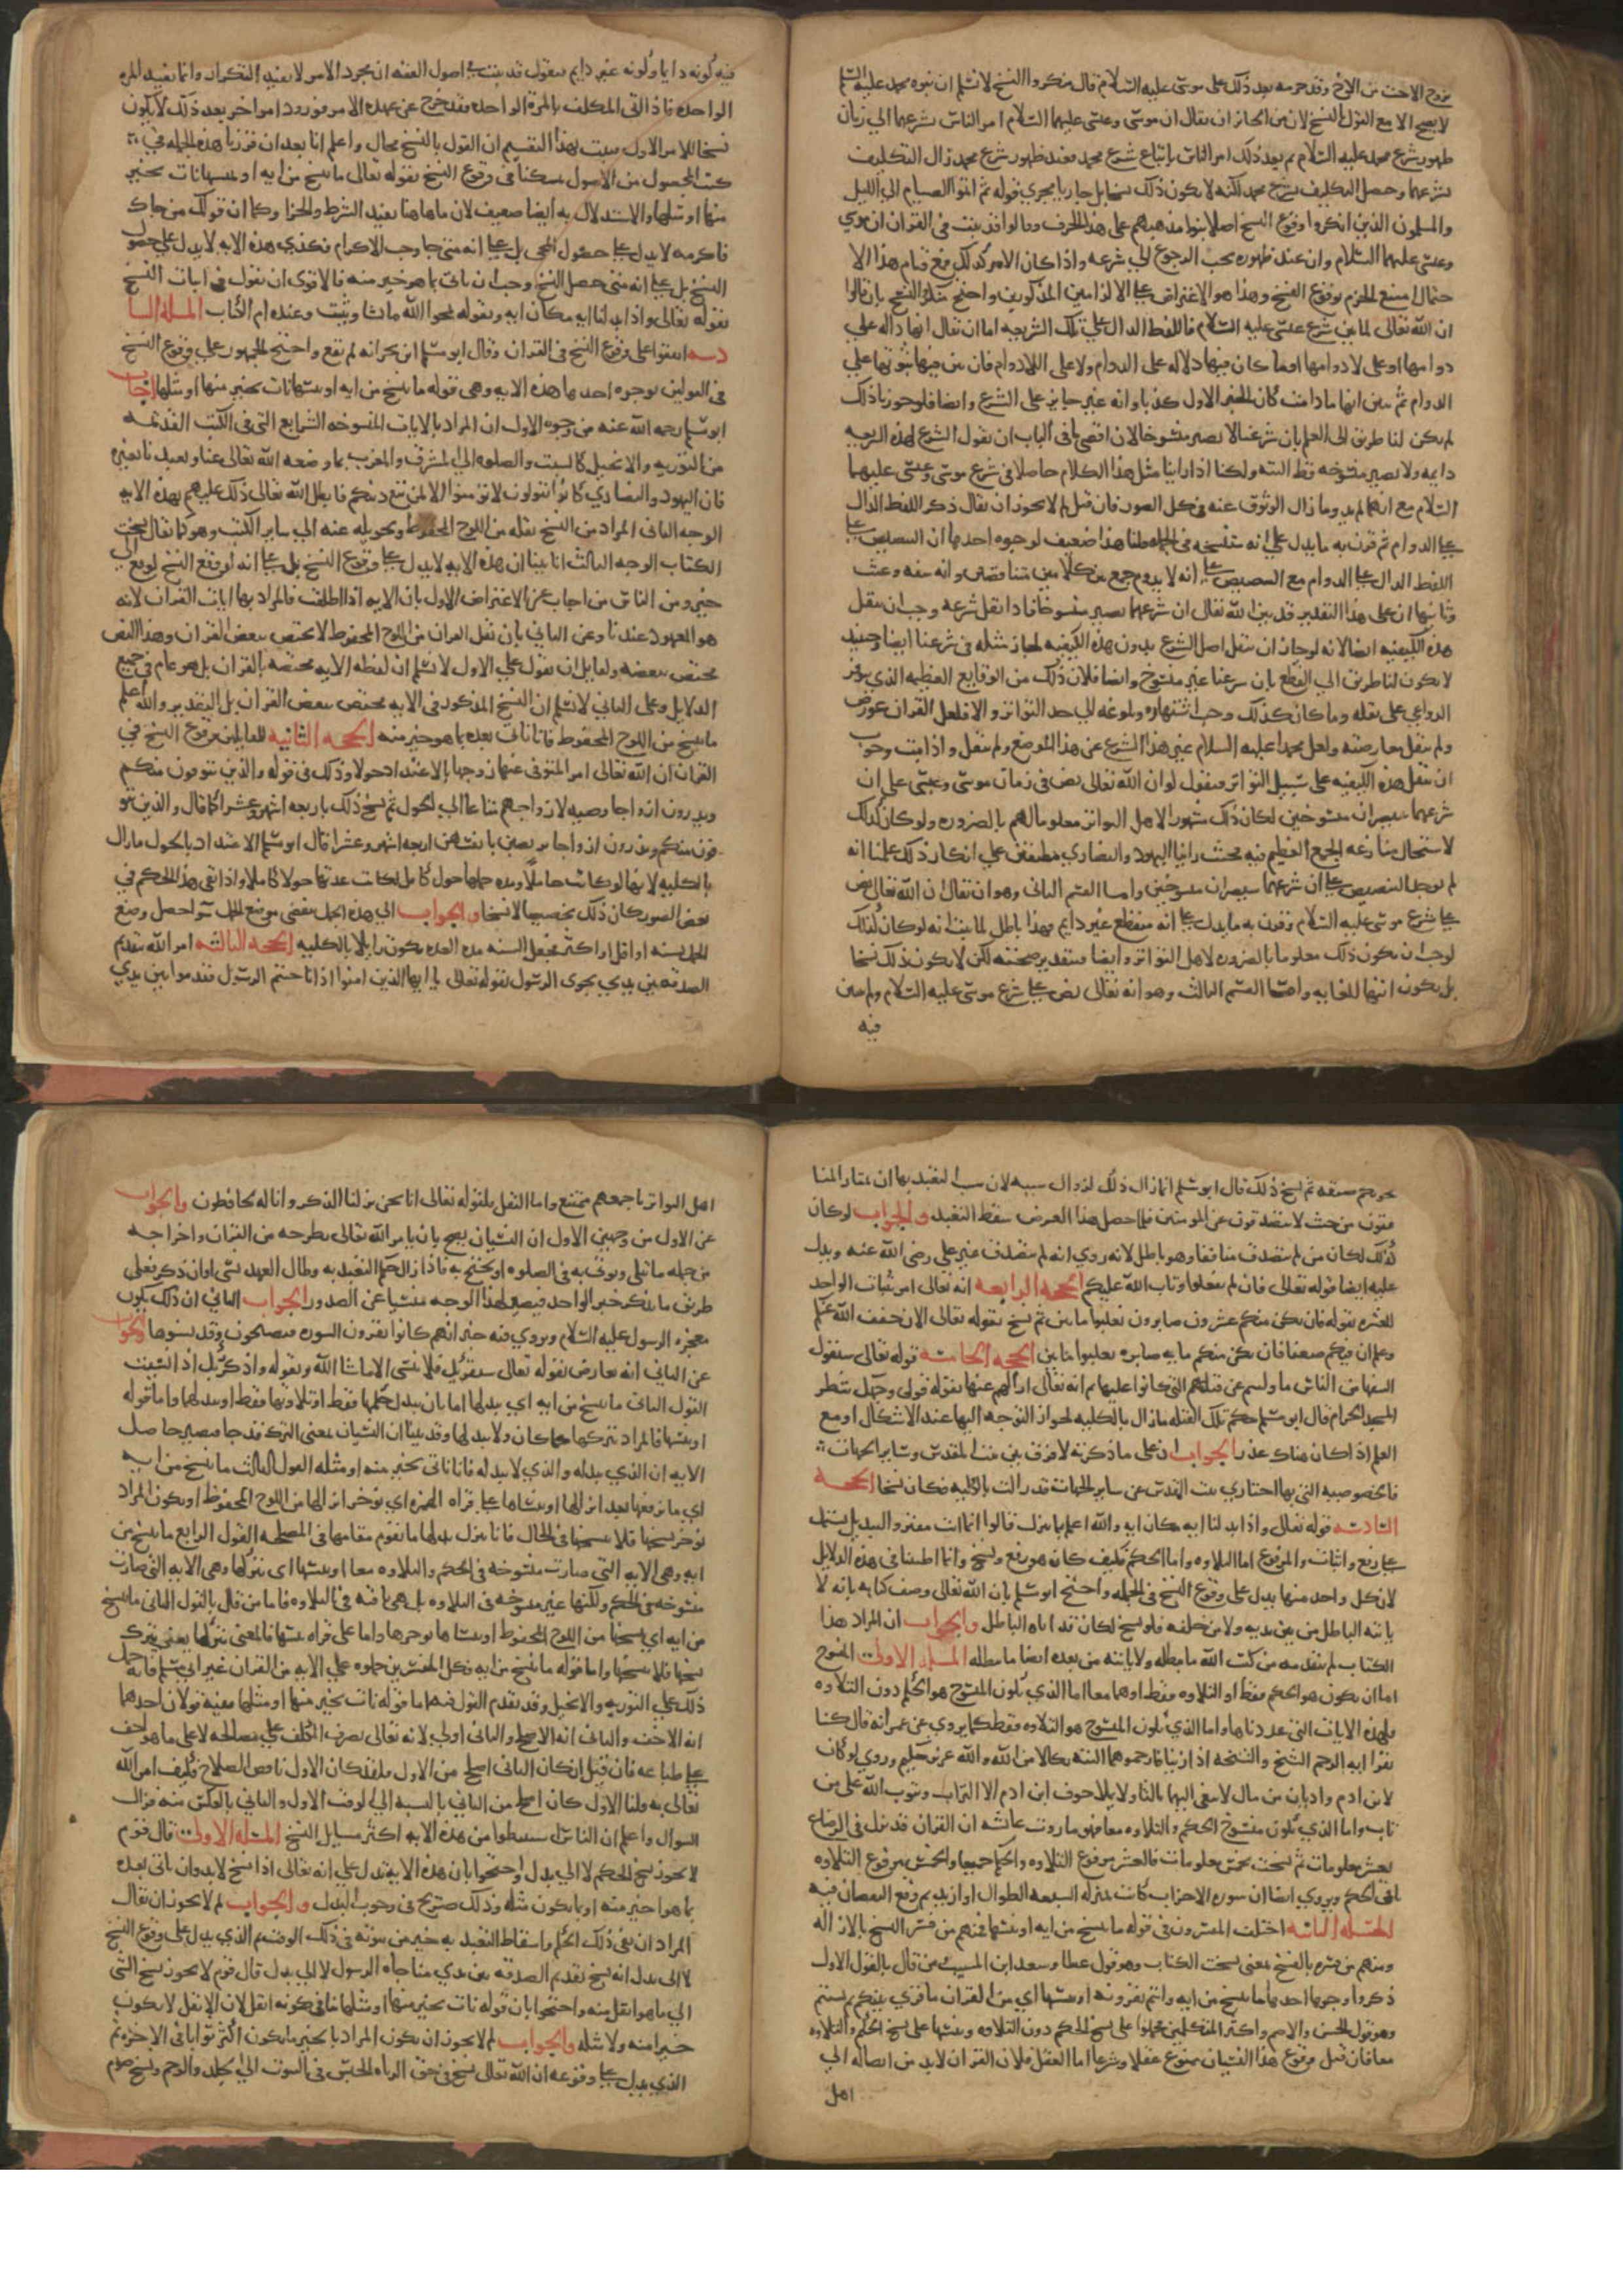 تزوج الاخت من الاخ وقد حرمه بعد ذلك على موسى عليه السلام قال منكروا النسخ لا نسلم ان نبوه محمد عليه السلم
لا يصح الا مع القول بالنسخ لان من الجائز ان يقال ان موسى وعيسى عليهما السلام امر الناس بشرعهما الي زمان
ظهور شرع محمد عليه السلام ثم بعد ذلك امر الناس باتباع شرع محمد فعند ظهور شرع محمد زال التكليف
بشرعهما وحصل التكليف بشرع محمد لكنه لا يكون ذلك نسخا بل جاريا مجري قوله ثم اتموا الصيام الي الليل
والمسلمون الذين انكروا وقوع النسخ اصلا بنوا مذهبهم على هذا الحرف وقالوا قد ثبت في القران ان موسي
وعيسى عليهما السلام وان عند ظهوره يجب الرجوع الي شرعه واذا كان الامر كذلك فمع قيام هذا الا
حتمال امتنع الجزم بوقوع النسخ وهذا هو الاعتراض على الالزامين المذكورين واحتج منكروا النسخ بان قالوا
ان الله تعالى لما بين شرع عيسى عليه السلام فاللفظ الدال علي تلك الشريعه اما ان يقال انها داله علي
دوامها او على لا دوامها او ما كان فيها دلاله على الدوام ولا على اللادوام فان بين فيها ثبوتها علي
الدوام ثم تبين انها ما دامت كان الخبر الاول كذبا وانه غير جايز على الشرع وايضا فلو جوزنا ذلك
لم يكن لنا طريق الى العلم بان شرعنا لا يصير منسوخا لان اقصى ما في الباب ان يقول الشرع هذه الشريعه
دايمه ولا يصير منسوخه قط البته ولكنا اذا راينا مثل هذا الكلام حاصلا في شرع موسى وعيسى عليهما
السلام مع انهما لم يدوما زال الوثوق عنه في كل الصور فان قيل لم لا يجوز ان يقال ذكر اللفظ الدال
على الدوام ثم قرن به ما يدل علي انه سينسخه في الجمله قلنا هذا ضعيف لوجوه احدها ان التنصيص على
اللفظ الدال على الدوام مع التنصيص على انه لا يدوم جمع بين كلامين متناقضين وانه سفه وعبث
وثانيها ان على هذا التقدير قد بين الله تعالى ان شرعهما يصير منسوخا فاذا نقل شرعه وجب ان ينقل
هذه الكيفيه ايضا لانه لو جاز ان ينقل اصل الشرع بدون هذه الكيفيه لجاز مثله في شرعنا ايضا وحينيذ
لا يكون لنا طريق الي القطع بان شرعنا غير منسوخ وايضا فلان ذلك من الوقايع العظيمه الذي يتوفر
الدواعي على نقله وما كان كذلك وجب اشتهاره وبلوغه الي حد التواتر والا فلعل القران عورض
ولم ينقل معارضته ولعل محمدا عليه السلام غير هذا الشرع عن هذا الموضع ولم ينقل واذا ثبت وجوب
ان ينقل هذه الكيفيه على سبيل التواتر فنقول لو ان الله تعالى نص في زمان موسى وعيسى على ان
شرعهما سيصيران منسوخين لكان ذلك مشهورا لاهل التواتر معلوما لهم بالضروره ولو كان كذلك
لاستحال منازعه الجمع العظيم فيه فحيث راينا اليهود والنصاري مطبقين على انكار ذلك علمنا انه
لم يوجد التنصيص على ان شرعهما سيصيران منسوخين واما القسم الثاني وهو ان يقال ان الله تعالى نص
على شرع موسى عليه السلام وقرن به ما يدل على انه منقطع غير دايم فهذا باطل لما بينا انه لو كان كذلك
لوجب ان يكون ذلك معلوما بالضروره لاهل التواتر وايضا فبتقدير صحته لكن لا يكون ذلك نسخا
بل يكون انتهاء للغايه واما القسم الثالث وهو انه تعالى نص على شرع موسى عليه السلام ولم يبين
فيه
فيه كونه دايما او كونه غير دايم فنقول قد ثبت في اصول الفقه ان مجرد الامر لا يفيد التكرار وانما يفيد المره
الواحده فاذا اتى المكلف بالمره الواحده فقد خرج عن عهده الامر فورود امر اخر بعد ذلك لا يكون
نسخا للامر الاول فثبت بهذا التقسيم ان القول بالنسخ محال واعلم انا بعد ان قررنا هذه الجمله في
كتاب المحصول من الاصول تمسكنا في وقوع النسخ بقوله تعالى ما ننسخ من ايه او ننسها نات بخير
منها او مثلها والاستدلال به ايضا ضعيف لان ما هاهنا يفيد الشرط والجزا وكما ان قولك من جاك
فاكرمه لا يدل على حصول المجي بل على انه متى جا وجب الاكرام فكذي هذه الايه لا يدل علي حصول
النسخ بل على انه متى حصل النسخ وجب ان ياتي بما هو خير منه فالاقوى ان نقول في اثبات النسخ
بقوله تعالى واذا بدلنا ايه مكان ايه وبقوله يمحوا الله ما يشا ويثبت وعنده ام الكتاب المسله السا
دسه اتفقوا على وقوع النسخ في القران وقال ابو مسلم ابن بحر انه لم يقع واحتج الجمهور علي وقوع النسخ
في القولين بوجوه احدها هذه الايه وهي قوله ما ننسخ من ايه او ننسها نات بخير منها او مثلها اجاب
ابو مسلم رحمه الله عنه من وجوه الاول ان المراد بالايات المنسوخه الشرايع التي في الكتب القديمه
من التوريه والانجيل كالسبت والصلوه الي المشرق والمغرب مما وضعه الله تعالى عنا وتعبدنا بغيره
فان اليهود والنصاري كانوا يقولون لا تومنوا الا لمن تبع دينكم فابطل الله تعالى ذلك عليهم بهذه الايه
الوجه الثاني المراد من النسخ نقله من اللوح المحفوظ وتحويله عنه الي ساير الكتب وهو كما يقال نسخت
الكتاب الوجه الثالث انا بينا ان هذه الايه لا يدل على وقوع النسخ بل على انه لو وقع النسخ لوقع الي
خير ومن الناس من اجاب عن الاعتراض الاول بان الايه اذا اطلقت فالمراد بها ايات القران لانه
هو المعهود عندنا وعن الثاني بان نقل القران من اللوح المحفوظ لا يختص ببعض القران وهذا النص
مختص ببعضه ولقايل ان يقول علي الاول لا نسلم ان لفظه الايه مختصه بالقران بل هو عام في جميع
الدلايل وعلى الثاني لا نسلم ان النسخ المذكور في الايه مختص ببعض القران بل التقدير والله اعلم
ما ننسخ من اللوح المحفوظ فانا ناتي بعده بما هو خير منه الحجه الثانيه للقايلين بوقوع النسخ في
القران ان الله تعالى امر المتوفى عنها زوجها بالاعتداد حولا وذلك في قوله والذين يتوفون منكم
ويذرون ازواجا وصيه لازواجهم متاعا الي الحول ثم نسخ ذلك باربعه اشهر وعشرا كما قال والذين يتو
فون منكم ويذرون ازواجا يتربصن بانفسهن اربعه اشهر وعشرا قال ابو مسلم الاعتداد بالحول ما زال
بالكليه لانها لو كانت حاملا ومده حملها حول كامل لكانت عدتها حولا كاملا واذا بقي هذا الحكم في
بعض الصور كان ذلك تخصيصا لا نسخا والجواب الي هذه الحمل ينقضي بوضع الحمل سوا حصل وضع
الحمل بسنه او اقل او اكثر فجعل السنه مده العده يكون زايلا بالكليه الحجه الثالثه امر الله بتقديم
الصدقه بين يدي نجوى الرسول بقوله تعالى يا ايها الذين امنوا اذا ناجيتم الرسول فقدموا بين يدي
نجويكم صدقه ثم نسخ ذلك قال ابو مسلم انما زال ذلك لزوال سببه لان سبب التعبد بها ان يمتاز المنا
فقون من حيث لا يتصدقون عن المومنين فلما حصل هذا الغرض سقط التعبد والجواب لو كان
كذلك لكان من لم يتصدق منافقا وهو باطل لانه روي انه لم يتصدق غير علي رضى الله عنه ويدل
عليه ايضا قوله تعالى فان لم تفعلوا وتاب الله عليكم الحجه الرابعه انه تعالى امر بثبات الواحد
للعشره بقوله فان يكن منكم عشرون صابرون يغلبوا مايتين ثم نسخ بقوله تعالى الان خفف الله عنكم
وعلم ان فيكم ضعفا فان يكن منكم مايه صابره يغلبوا مايتين الحجه الخامسه قوله تعالى سيقول
السفها من الناس ما وليهم عن قبلتهم التي كانوا عليها ثم انه تعالى ازالهم عنها بقوله فولى وجهك شطر
المسجد الحرام قال ابو مسلم حكم تلك القبله ما زال بالكليه لجواز التوجه اليها عند الاشكال او مع
العلم اذا كان هناك عذر الجواب ان على ما ذكرته لا فرق بين بيت المقدس وساير الجهات
فالخصوصيه التي بها امتاز بيت المقدس عن ساير الجهات قد زالت بالكليه فكان نسخا الحجه
السادسه قوله تعالى واذا بدلنا ايه مكان ايه والله اعلم بما ينزل قالوا انما انت مفتر والتبديل يشتمل
على رفع واثبات والمرفوع اما التلاوه واما الحكم فكيف كان هو رفع ونسخ وانما اطنبنا في هذه الدلايل
لان كل واحد منها يدل على وقوع النسخ في الجمله واحتج ابو مسلم بان الله تعالى وصف كتابه بانه لا
ياتيه الباطل من بين يديه ولا من خلفه فلو نسخ لكان قد اتاه الباطل والجواب ان المراد هذا
الكتاب لم يتقدمه من كتب الله ما يبطله ولا ياتيه من بعده ايضا ما يبطله المسله الاولى المنسوخ
اما ان يكون هو الحكم فقط او التلاوه فقط او هما معا اما الذي يكون المنسوخ هو الحكم دون التلاوه
فلهذه الايات التي عددناها واما الذي يكون المنسوخ هو التلاوه فقط كما يروي عن عمر انه قال كنا
نقرا ايه الرجم الشيخ والشيخه اذا زنيا فارجموهما البته نكالا من الله والله عزيز حكيم وروي لو كان
لابن ادم واديان من مال لابتغى اليهما ثالثا ولا يملا جوف ابن ادم الا التراب ويتوب الله على من
تاب واما الذي يكون منسوخ الحكم والتلاوه معا فهو ما روت عائشه ان القران قد نزل في الرضاع
بعشر معلومات ثم نسخت بخمس معلومات فالعشر مرفوع التلاوه والحكم جميعا والخمس مرفوع التلاوه
باقي الحكم ويروي ايضا ان سوره الاحزاب كانت بمنزله السبعه الطوال او ازيد ثم وقع النقصان فيه
المسله الثانيه اختلف المفسرون في قوله ما ننسخ من ايه او ننسها فمنهم من فسر النسخ بالازاله
ومنهم من فسره بالنسخ بمعنى نسخت الكتاب وهو قول عطا وسعيد ابن المسيب ومن قال بالقول الاول
ذكروا وجوها احدها ما ننسخ من ايه وانتم تقرونه او ننسها اي من القران ما قري بينكم ثم نسيتم
وهو قول الحسن والاصم واكثر المتكلمين حملوا على نسخ الحكم دون التلاوه وننسها على نسخ الحكم والتلاوه
معا فان قيل وقوع هذا النسيان ممنوع عقلا وشرعا اما العقل فلان القران لا بد من ايصاله الى
اهل
اهل التواتر باجمعهم ممتنع واما النقل فلقوله تعالى انا نحن نزلنا الذكر وانا له لحافظون والجواب
عن الاول من وجهين الاول ان النسيان يصح بان يامر الله تعالى بطرحه من القران واخراجه
من جمله ما يتلى ويوتى به في الصلوه او يحتج به فاذا زال حكم التعبد به وطال العهد نسي او ان ذكر فعلى
طريق ما يذكر خبر الواحد فيصير لهذا الوجه منسيا عن الصدور الجواب الثاني ان ذلك يكون
معجزه الرسول عليه السلام ويروي فيه خبر انهم كانوا يقرون السوره فيصبحون وقد نسوها والجواب
عن الثاني انه معارض بقوله تعالى سنقرئك فلا تنسى الا ما شا الله وبقوله واذكر ربك اذا نسيت
القول الثاني ما ننسخ من ايه اي نبدلها اما بان نبدل حكمها فقط او تلاوتها فقط او نبدلها واما قوله
او ننسها فالمراد نتركها كما كان ولا نبدلها وقد بينا ان النسيان بمعنى الترك قد جا فيصير حاصل
الايه ان الذي نبدله والذي لا نبدله فانا ناتي بخير منه او مثله القول الثالث ما ننسخ من ايه
اي ما نرفعها بعد انزالها او ننساها على قراه الهمزه اي نوخر انزالها من اللوح المحفوظ او يكون المراد
نوخر نسخها فلا ننسخها في الحال فانا ننزل بدلها ما يقوم مقامها في المصلحه القول الرابع ما ننسخ من
ايه وهي الايه التي صارت منسوخه في الحكم والتلاوه معا او ننسها اى نتركها وهي الايه التي صارت
منسوخه في الحكم ولكنها غير منسوخه في التلاوه بل هي باقيه في التلاوه فاما من قال بالقول الثاني ما ننسخ
من ايه اي ننسخها من اللوح المحفوظ او ننساها نوخرها واما على قراه ننسها فالمعنى نتركها يعني نترك
نسخها فلا ننسخها واما قوله ما ننسخ من ايه فكل المفسرين حملوه علي الايه من القران غير ابي مسلم فانه حمل
ذلك علي التوريه والانجيل وقد تقدم القول فيهما قوله نات بخير منها او مثلها ففيه قولان احدهما
انه الاخف والثاني انه الاصلح والثاني اولى لانه تعالى يصرف المكلف علي مصالحه لا على ما هو اخف
على طباعه فان قيل ان كان الثاني اصلح من الاول فلقد كان الاول ناقص الصلاح فكيف امر الله
تعالى به قلنا الاول كان اصلح من الثاني بالنسبه الي الوقت الاول والثاني بالعكس منه فزال
السوال واعلم ان الناس استنبطوا من هذه الايه اكثر مسايل النسخ المسله الاولى قال قوم
لا يجوز نسخ الحكم لا الي بدل واحتجوا بان هذه الايه تدل علي انه تعالى اذا نسخ لا بد وان ياتي بعده
بما هو خير منه او بما يكون مثله وذلك صريح في وجوب البدل والجواب لم لا يجوز ان يقال
المراد ان نفى ذلك الحكم واسقاط التعبد به خير من ثبوته في ذلك الوقت ثم الذي يدل على وقوع النسخ
لا الى بدل انه نسخ تقديم الصدقه بين يدي مناجاه الرسول لا الي بدل قال قوم لا يجوز نسخ الشى
الي ما هو اثقل منه واحتجوا بان قوله نات بخير منها او مثلها ينافي كونه اثقل لان الاثقل لا يكون
خيرا منه ولا مثله والجواب لم لا يجوز ان يكون المراد بالخير ما يكون اكثر ثوابا في الاخره ثم
الذي يدل على وقوعه ان الله تعالى نسخ في حق الزناه الحبس في البيوت الي الجلد والرجم ونسخ صوم